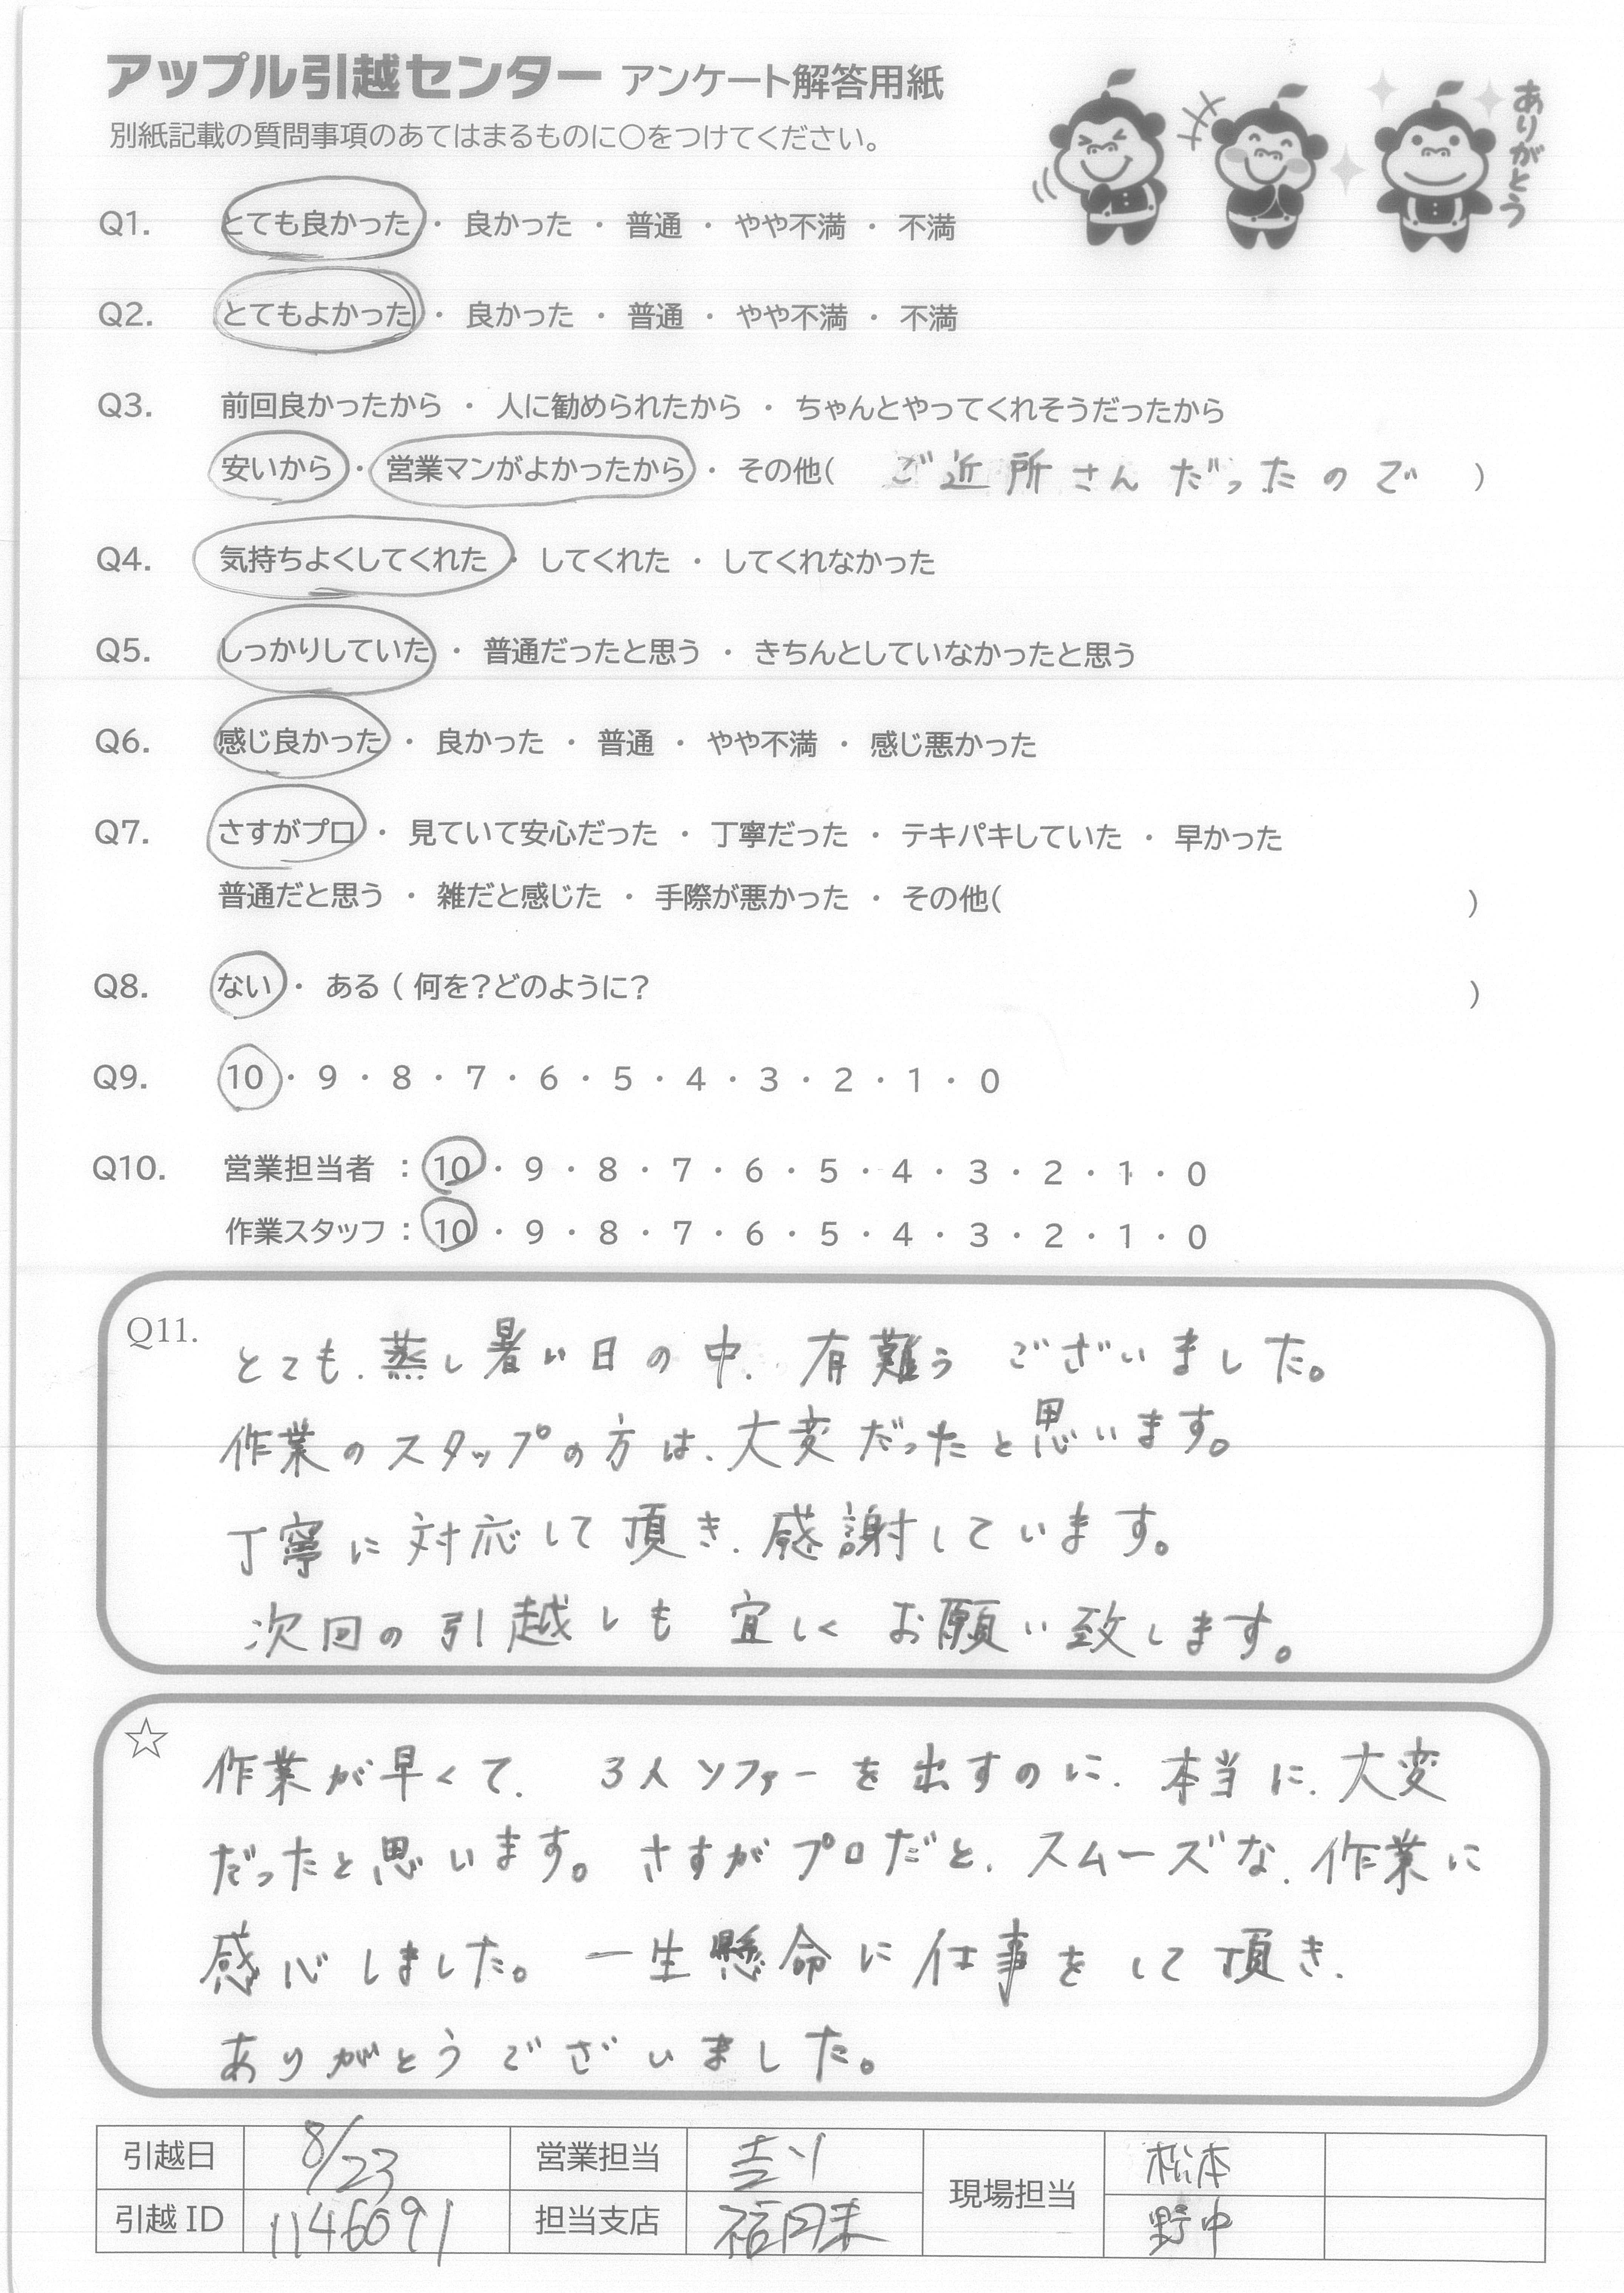 アップル引越センター アンケート解答用紙
ありがとう
別紙記載の質問事項のあてはまるものに○をつけてください。
Q1. とても良かった ・ 良かった ・ 普通 ・ やや不満 ・ 不満
Q2. とてもよかった ・ 良かった ・ 普通 ・ やや不満 ・ 不満
Q3. 前回良かったから ・ 人に勧められたから ・ ちゃんとやってくれそうだったから
安いから ・ 営業マンがよかったから ・ その他( ご近所さんだったので )
Q4. 気持ちよくしてくれた ・ してくれた ・ してくれなかった
Q5. しっかりしていた ・ 普通だったと思う ・ きちんとしていなかったと思う
Q6. 感じ良かった ・ 良かった ・ 普通 ・ やや不満 ・ 感じ悪かった
Q7. さすがプロ ・ 見ていて安心だった ・ 丁寧だった ・ テキパキしていた ・ 早かった
普通だと思う ・ 雑だと感じた ・ 手際が悪かった ・ その他( )
Q8. ない ・ ある ( 何を?どのように? )
Q9. 10 ・ 9 ・ 8 ・ 7 ・ 6 ・ 5 ・ 4 ・ 3 ・ 2 ・ 1 ・ 0
Q10. 営業担当者 : 10 ・ 9 ・ 8 ・ 7 ・ 6 ・ 5 ・ 4 ・ 3 ・ 2 ・ 1 ・ 0
作業スタッフ : 10 ・ 9 ・ 8 ・ 7 ・ 6 ・ 5 ・ 4 ・ 3 ・ 2 ・ 1 ・ 0
Q11. とても、蒸し暑い日の中、有難うございました。
作業のスタップの方は、大変だったと思います。
丁寧に対応して頂き、感謝しています。
次回の引越しも宜しくお願い致します。
☆ 作業が早くて、3人ソファーを出すのに、本当に、大変
だったと思います。さすがプロだと、スムーズな、作業に
感心しました。一生懸命に仕事をして頂き、
ありがとうございました。
引越日 8/23 営業担当 現場担当 松本
引越ID 1146091 担当支店 野中